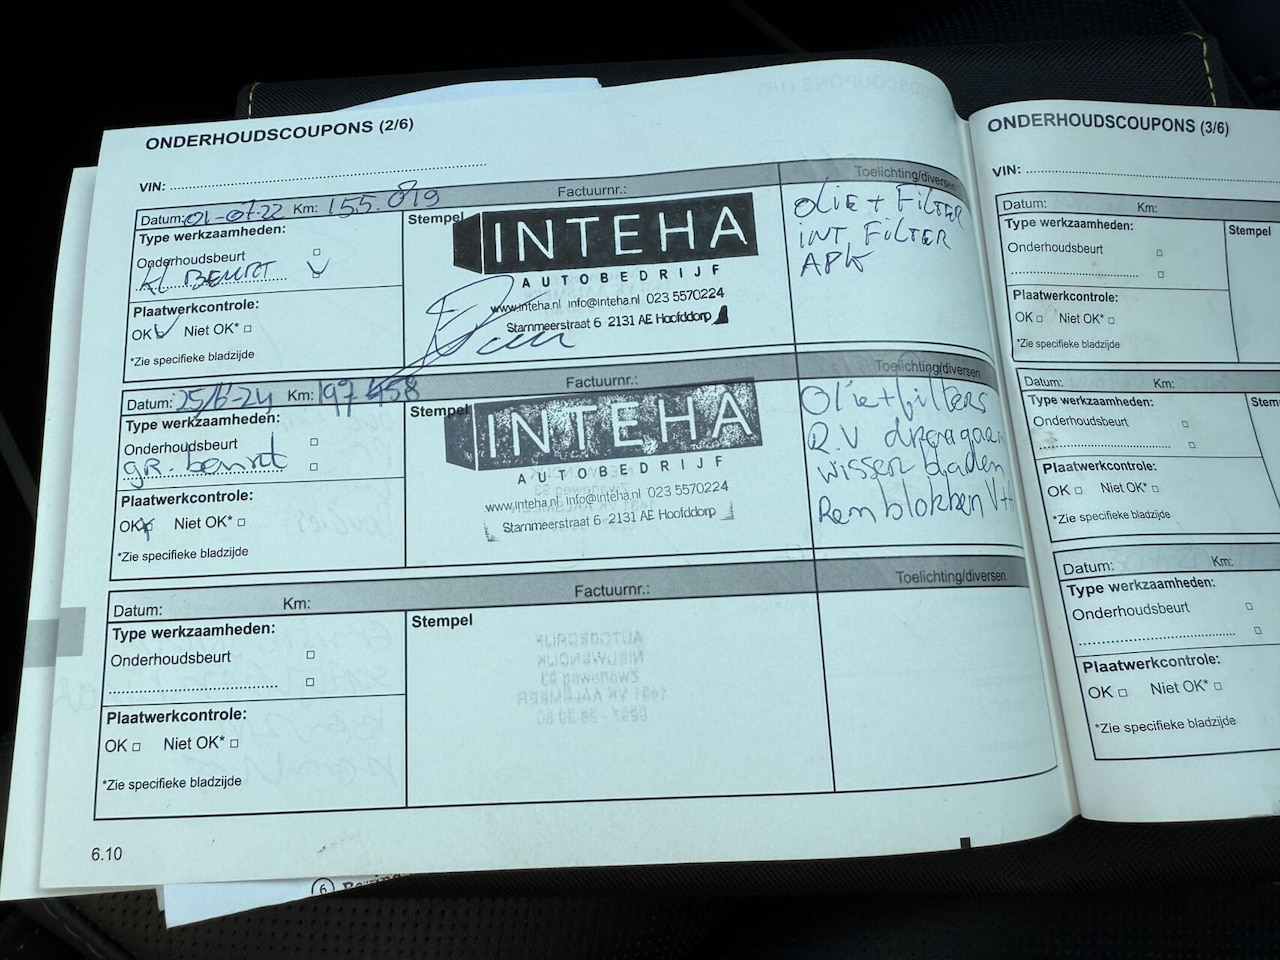 ONDERHOUDSCOUPONS (2/6)
VIN:
Datum: 01-07-22 Km: 155.819 Factuurnr.: Toelichting/diversen
Type werkzaamheden:
Onderhoudsbeurt
Kl BEURT
Plaatwerkcontrole:
OK Niet OK*
*Zie specifieke bladzijde
Stempel
INTEHA
AUTOBEDRIJF
www.inteha.nl info@inteha.nl 023 5570224
Starnmeerstraat 6 2131 AE Hoofddorp
OLIE + FILTER
INT. FILTER
APK
Datum: 25/6-24 Km: 197 458 Factuurnr.: Toelichting/diversen
Type werkzaamheden:
Onderhoudsbeurt
gr. beurt
Plaatwerkcontrole:
OK Niet OK*
*Zie specifieke bladzijde
Stempel
INTEHA
AUTOBEDRIJF
www.inteha.nl info@inteha.nl 023 5570224
Starnmeerstraat 6 2131 AE Hoofddorp
Olie+filters
R.V draagarm
wisserbladen
Remblokken V+
Datum: Km: Factuurnr.: Toelichting/diversen
Type werkzaamheden:
Onderhoudsbeurt
Plaatwerkcontrole:
OK Niet OK*
*Zie specifieke bladzijde
Stempel
6.10
ONDERHOUDSCOUPONS (3/6)
VIN:
Datum: Km:
Type werkzaamheden:
Onderhoudsbeurt
Plaatwerkcontrole:
OK Niet OK*
*Zie specifieke bladzijde
Stempel
Datum: Km:
Type werkzaamheden:
Onderhoudsbeurt
Plaatwerkcontrole:
OK Niet OK*
*Zie specifieke bladzijde
Stem
Datum: Km:
Type werkzaamheden:
Onderhoudsbeurt
Plaatwerkcontrole:
OK Niet OK*
*Zie specifieke bladzijde